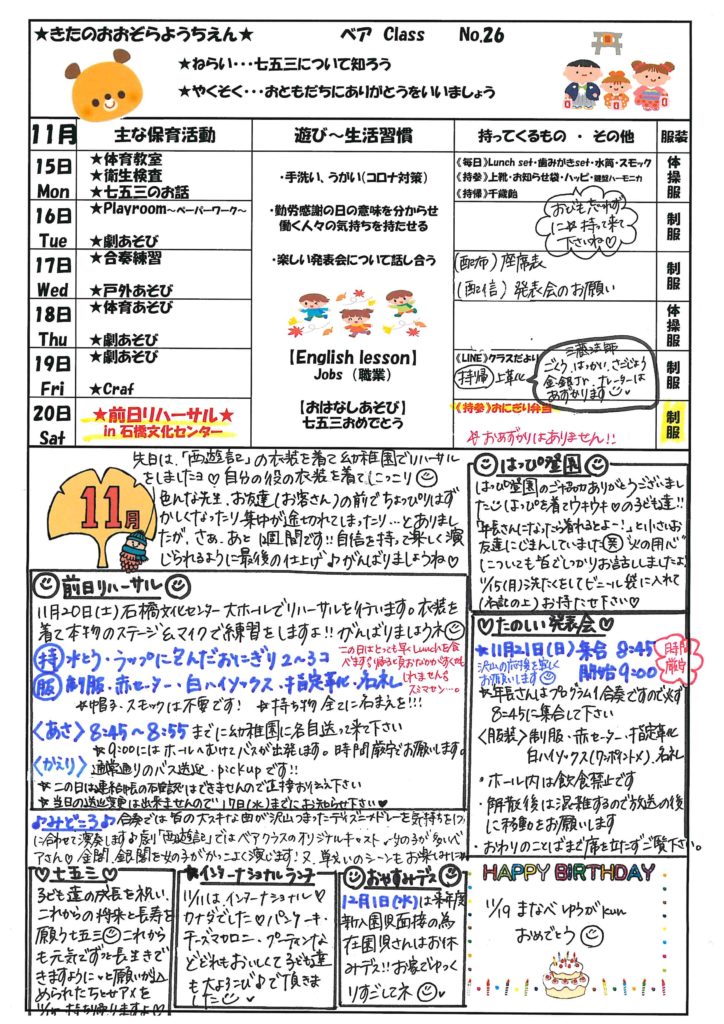 ★きたのおおぞらようちえん★ ベア Class No.26
★ねらい・・・七五三について知ろう
★やくそく・・・おともだちにありがとうをいいましょう
11月 主な保育活動 遊び～生活習慣 持ってくるもの ・ その他 服装
15日 Mon
★体育教室
★衛生検査
★七五三のお話
16日 Tue
★Playroom～ペーパーワーク～
★劇あそび
17日 Wed
★合奏練習
★戸外あそび
18日 Thu
★体育あそび
★劇あそび
19日 Fri
★劇あそび
★Craf
20日 Sat
★前日リハーサル★
in 石橋文化センター
・手洗い、うがい(コロナ対策)
・勤労感謝の日の意味を分からせ
働く人々の気持ちを持たせる
・楽しい発表会について話し合う
【English lesson】
Jobs (職業)
【おはなしあそび】
七五三おめでとう
《毎日》Lunch set・歯みがきset・水筒・スモック
《持参》上靴・お知らせ袋・ハッピ・鍵盤ハーモニカ
《持帰》千歳飴
おひも忘れず
に 持って来て
下さいね♡
(配布) 座席表
(配信) 発表会のお願い
《LINE》クラスだより
持帰 上靴
三蔵法師
ごくう、はっかい、さごじょう
金・銀 、ナレーターは
あずかります
《持参》おにぎり弁当
☆おかずがはありません!!
体操服
制服
制服
体操服
制服
制服
11月
先日は、「西遊記」の衣装を着て幼稚園でリハーサル
をしましたヨ♡自分の役の衣装を着てにっこり
色んな先生、お友達(お客さん)の前でちょっぴりはず
かしくなったり、集中が途切れてしまったり…とありまし
たが、さぁ、あと1週間です!!自信を持って楽しく演
じられるように最後の仕上げ♪がんばりましょうね♡
はっぴ登園
はっぴ登園のご協力ありがとうございまし
た はっぴを着てウキウキ♡の子ども達!!
「年長さんになったら着れるとよー!」と小さいお
友達にじまんしていました(笑)"火の用心"
についても皆でしっかりお話ししましたよ!
11/15(月)洗たくをしてビニール袋に入れて
(名記の上)お持たせ下さい♡
前日リハーサル
11月20日(土)石橋文化センター大ホールでリハーサルを行います。衣装を
着て本物のステージ&マイクで練習をしますよ!!がんばりましょうネ
この日はとっても早くLunchを食
べます
スミマセン…。
(持) 水とう・ラップに包んだおにぎり2～3コ
(服) 制服・赤セーター・白ハイソックス・指定革化・名札
☆帽子・スモックは不要です! ☆持ち物全てに名まえを!!!
〈あさ〉8:45～8:55までに幼稚園に各自送って来て下さい
☆9:00にはホールへむけてバスが出発します。時間厳守でお願いします。
〈かえり〉通常通りのバス送迎・pickupです!!
☆この日は連絡帳の確認はできませんので直接お伝え下さい
☆当日の送迎変更は出来ませんので17日(水)までにお知らせ下さい♡
♡たのしい発表会♡
★11月21日(日)集合 8:45
開始 9:00
時間厳守
沢山の応援を宜しく
お願いします
☆年長さんはプログラム1合奏ですので必ず
8:45に集合して下さい
〈服装〉制服・赤セーター・指定革化
白ハイソックス(ワンポイント〆)、名札
・ホール内は飲食禁止です
・解散後は混雑するので放送の後
に移動をお願いします
・おわりのことばまで席を立たずご覧下さい。
♪みどころ♪合奏では皆の大スキな曲が沢山つまったディズニーメドレーを気持ちを1つ
に合わせて演奏します♪劇「西遊記」ではベアクラスのオリジナルキャスト♪女の子が多いベ
アさん♡金閣、銀閣を女の子がかっこよく演じます!又、早 いのシーンもお楽しみに
♡七五三
子ども達の成長を祝い、
これからの将来と長寿を
願う七五三 これから
も元気でずっと長生きで
きますように♡と願いが込
められたちとせアメを
11/ 持ち帰りますよ♡
★インターナショナルランチ
11/11は、インターナショナル♡
カナダでした♡パンケーキ・
チーズマカロニ・プーティンな
どどれもおいしくて子ども達
も大よろこび♪で頂きま
した
おやすみデス
12月1日(水)は来年度
新入園児面接の為
在園児さんはお休
みデス!!お家でゆっく
りすごしてネ
HAPPY BiRTHDAY
11/19 まなべ ゆうがkun
おめでとう